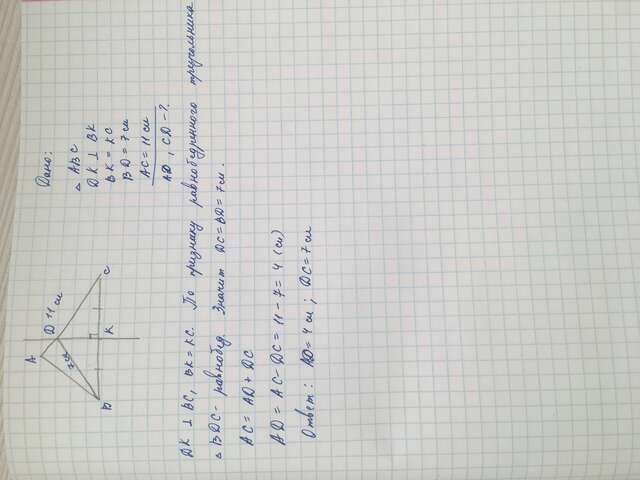 A
D 11 см
7 см
B
K
C
Дано:
△ ABC
DK ⊥ BK
BK = KC
BD = 7 см
AC = 11 см
AD, CD - ?
DK ⊥ BC, BK = KC. По признаку равнобедренного треугольника
△ BDC - равнобед. Значит DC = BD = 7 см.
AC = AD + DC
AD = AC - DC = 11 - 7 = 4 (см)
Ответ: AD = 4 см; DC = 7 см